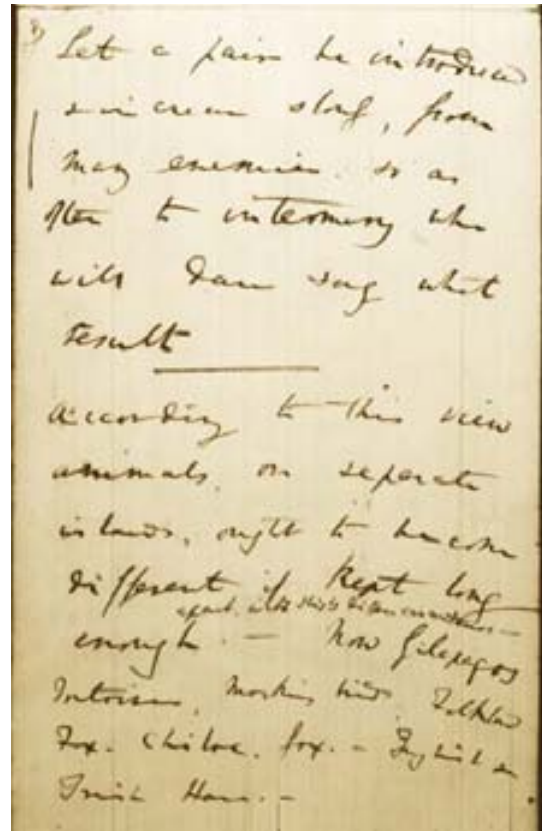 7)
Let a pair be introduced
& increase slowly, from
many enemies, so as
often to intermarry who
will dare say what
result
According to this view
animals, on seperate
islands, ought to become
different if kept long
apart, with slightly differen circumstances. —
enough. — Now Galapagos
Tortoises, Mocking birds, Falkland
Fox. Chiloe, fox. — English &
Irish Hare. —